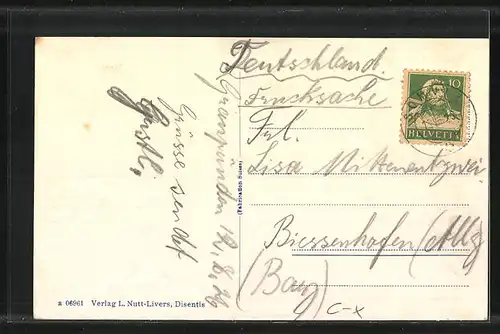 Graubünden 12.8.26
Grüsse sendet
Gustl.
Deutschland.
Drucksache
Frl.
Lisa Mittenentzwei
Biessenhofen (Allg)
(Bay)
C-X
10
HELVETIA
(Fabrication Suisse)
a 06961 Verlag L. Nutt-Livers, Disentis